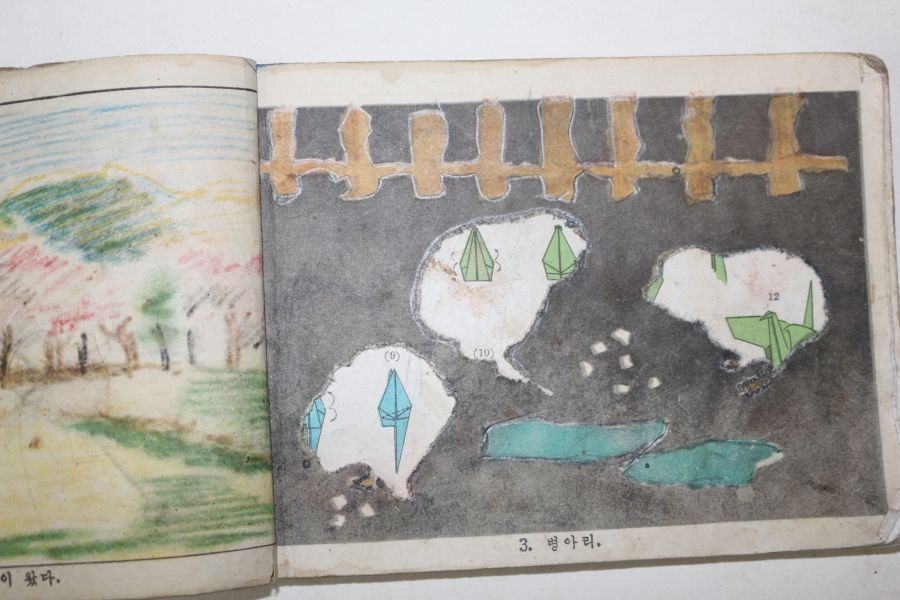 이 왔다.
(10)
12
(9)
3. 병아리.